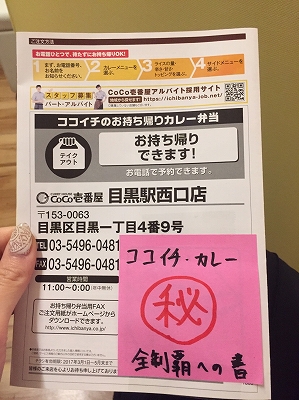 ご注文方法
お電話ひとつで、待たずにお持ち帰りOK!
1 まず、お電話番号、お名前をお知らせください。
2 カレーメニューを選ぶ。
3 ライスの量・辛さ・甘さ・トッピングを選ぶ。
4 サイドメニューを選ぶ。
スタッフ募集
パート・アルバイト
CoCo壱番屋アルバイト採用サイト
https://ichibanya-job.net/
ココイチのお持ち帰りカレー弁当
テイクアウト
お持ち帰りできます!
お電話で予約できます。
CoCo壱番屋 目黒駅西口店
〒153-0063
目黒区目黒一丁目4番9号
TEL 03-5496-0481
FAX 03-5496-0481
営業時間
11:00~0:00(年中無休)
お持ち帰り弁当用FAX
ご注文用紙がホームページから
ダウンロードできます。
http://www.ichibanya.co.jp/
チラシ有効期間 2017年3月1日~5月末まで
ココイチ・カレー
秘
全制覇への書